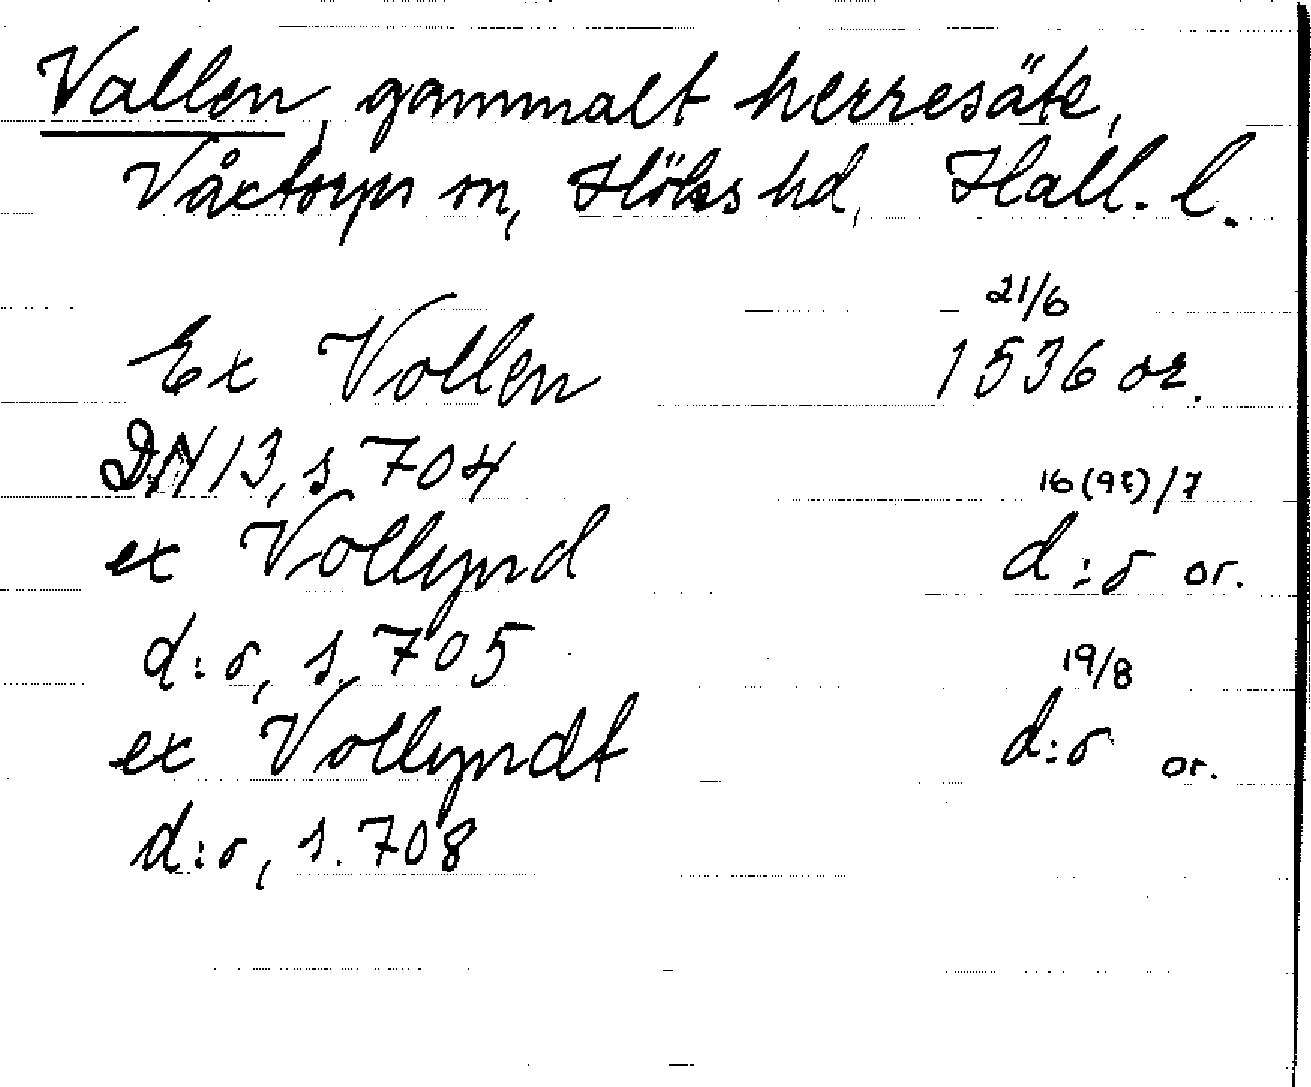 Vallen, gammalt herresäte,
Våxtorps sn, Höks hd, Hall. l.
21/6
Ex Vollen 1536 or.
DN 13, s 704
16(98)/7
ex Vollynd d:o or.
d:o, s. 705
19/8
ex Vollyndt d:o or.
d:o, s. 708